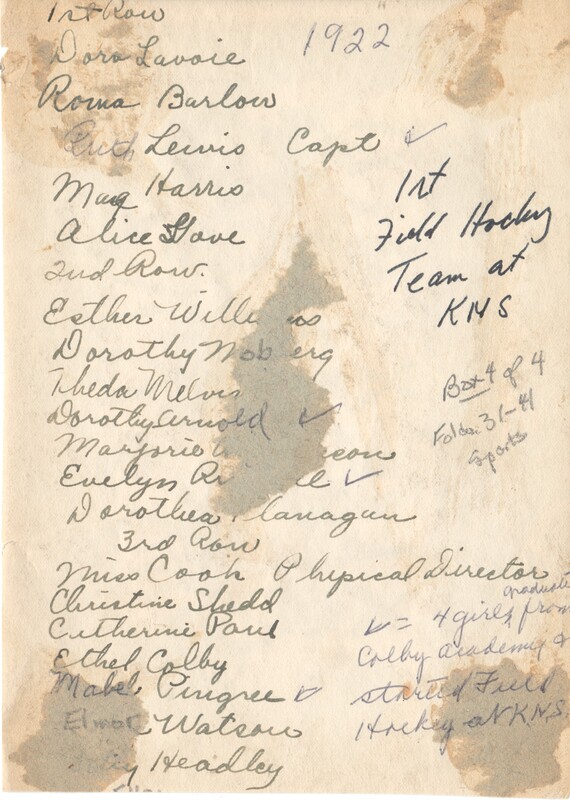 1st Row
1922
Dora Lavoie
Roma Barlow
Ruth Lewis Capt ✓
May Harris
Alice Gove
1st
Field Hockey
Team at
KNS
2nd Row.
Esther Willi ms
Dorothy Nob erg
Theda Melvin
Dorothy Arnold ✓
Marjorie
Evelyn ✓
Dorothea lanagan
Box 4 of 4
Folder 31-41
Sports
3rd Row
Miss Cook Physical Director
Christine Shedd
Catherine Paul
Ethel Colby
Mabel Pingree ✓
Watson
Headley
✓ = 4 girls graduate from
Colby Academy &
started Field
Hockey at K.N.S.